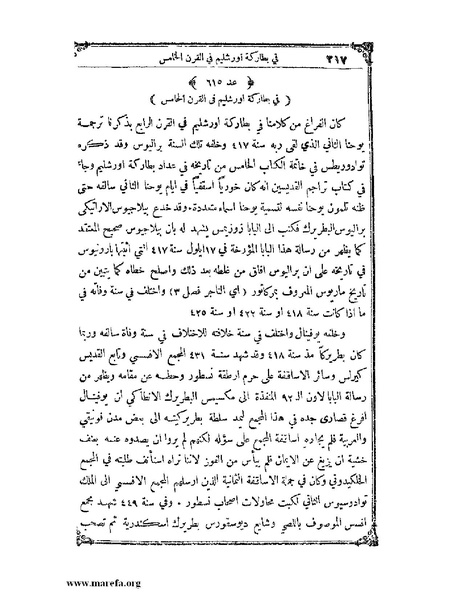 في بطاركة اورشليم في القرن الخامس ٣١٧
﴿ عد ٦١٥ ﴾
( في بطاركة اورشليم في القرن الخامس )
كان الفراغ من كلامنا في بطاركة اورشليم في القرن الرابع بذكرنا ترجمة
يوحنا الثاني الذي لقي ربه سنة ٤١٧ وخلفه تلك السنة براليوس وقد ذكره
توادوريطس في خاتمة الكتاب الخامس من تاريخه في عداد بطاركة اورشليم وجاء
في كتاب تراجم القديسين انه كان خوريا اسقفيا في ايام يوحنا الثاني سالفه حتى
ظنه تلمون يوحنا نفسه لتسمية يوحنا اسماء متعددة . وقد خدع بيلاجيوس الاراتيكي
براليوس البطريرك فكتب الى البابا زوزيمس يشهد له بان بيلاجيوس صحيح المعتقد
كما يظهر من رسالة هذا البابا المؤرخة في ١٧ ايلول سنة ٤١٧ التي اثبتها بارونيوس
في تاريخه على ان براليوس افاق من غلطه بعد ذلك واصلح خطاه كما يتبين من
تاريخ ماريوس المعروف بمركاتور ( اي التاجر فصل ٣) واختلف في سنة وفاته في
ما اذا كانت سنة ٤١٨ او سنة ٤٢٢ او سنة ٤٢٥
وخلفه يوفينال واختلف في سنة خلافته للاختلاف في سنة وفاة سالفه وربما
كان بطريركا مذ سنة ٤١٨ وقد شهد سنة ٤٣١ المجمع الافسسي وتابع القديس
كيرلس وسائر الاساقفة على حرم ارطقة نسطور وحطه عن مقامه ويظهر من
رسالة البابا لاون الـ ٩٢ المنفذة الى مكسيمس البطريرك الانطاكي ان يوفينال
افرغ قصارى جده في هذا المجمع ليمد سلطة بطريركيته الى بعض مدن فونيقي
والعربية فلم يجاره اساقفة المجمع على سؤله لكنهم لم يروا ان يصدوه عنه بعنف
خشية ان يزيغ عن الايمان فلم ييأس من الفوز لاننا نراه استأنف طلبته في المجمع
الخلكيدوني وكان في جملة الاساقفة الثمانية الذين ارسلهم المجمع الافسسي الى الملك
توادوسيوس الثاني لكبت محاولات اصحاب نسطور . وفي سنة ٤٤٩ شهد مجمع
افسس الموصوف باللصي وشايع ديوسقورس بطريرك اسكندرية ثم تصحب
www.marefa.org